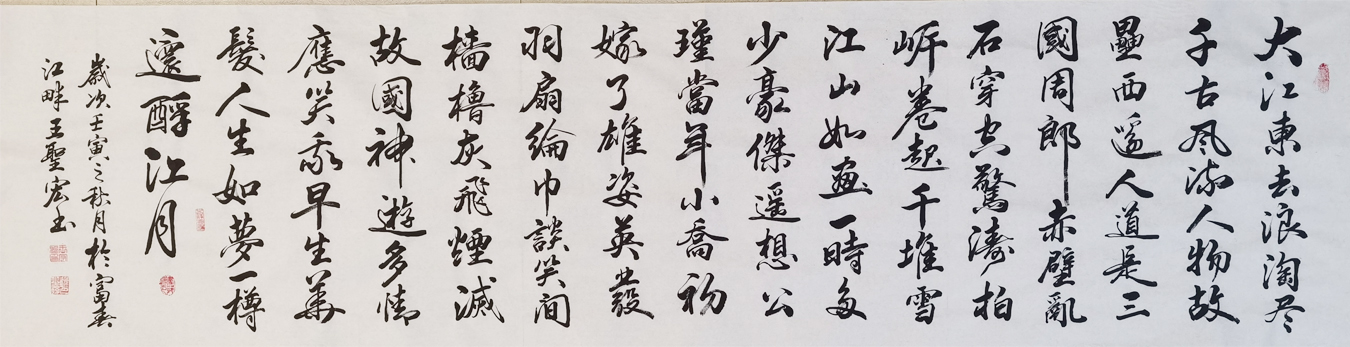 大江東去浪淘尽
千古風流人物故
壘西邊人道是三
國周郎赤壁亂
石穿空驚濤拍
岸卷起千堆雪
江山如畫一時多
少豪傑遥想公
瑾當年小喬初
嫁了雄姿英發
羽扇綸巾談笑間
檣櫓灰飛煙滅
故國神遊多情
應笑我早生華
髮人生如夢一樽
還酹江月
歲次壬寅之秋月於富春
江畔王聖宏书